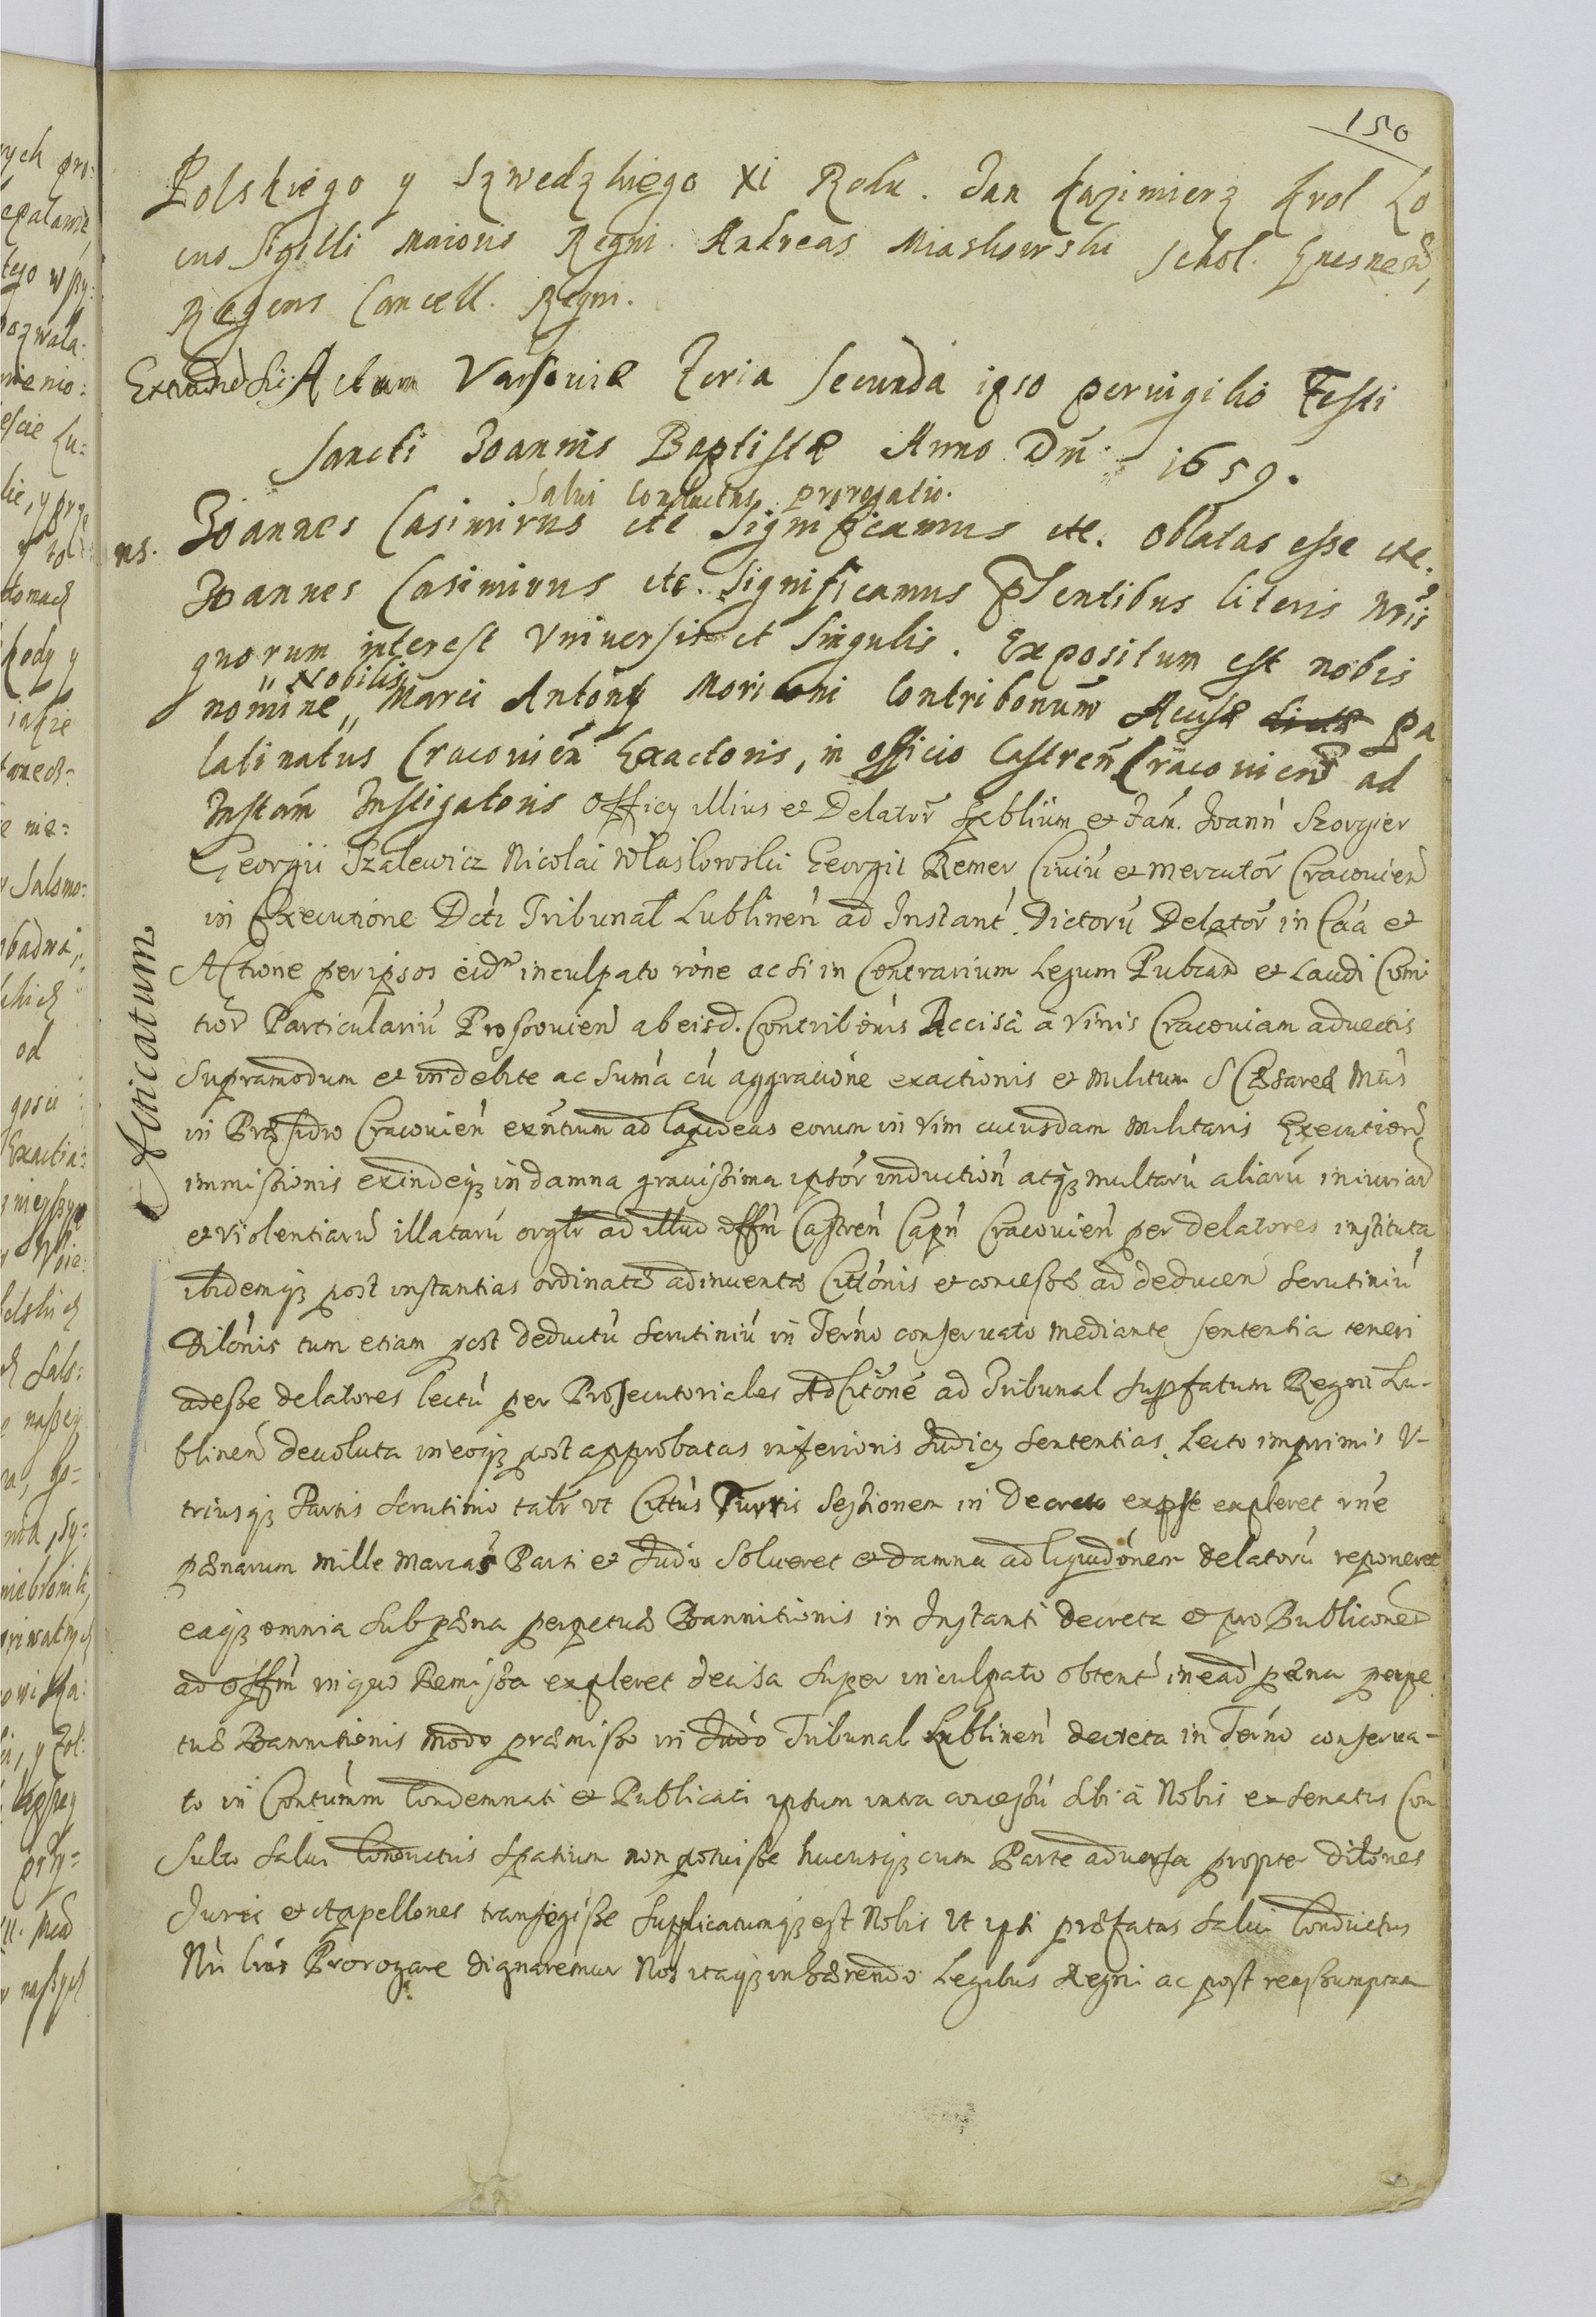 150
Polskiego y Szwedzkiego XI Roku. Jan Kazimierz Krol Lo
cus Sigilli Maioris Regni. Andreas Miaskowski Schol. Gnesnen,
Regens Cancell. Regni.
Actum Varsoviæ Feria Secunda ipso pervigilio Festi
Sancti Joannis Baptistæ Anno Dni 1659.
Salvi Conductus prorogatio.
ns. Joannes Casimirus etc Significamus etc. oblatas esse etc.
Joannes Casimirus etc. Significamus pñtentibus literis nris
quorum interest Universis et Singulis. Expositum est nobis
nomine Nobilis Marci Antony Moriconi Contribonum Accisæ dictæ Pa
latinatus Cracovien Exactoris, in officio Castren Cracovien ad
Instam Instigatoris Officy illius et Delator et Fam. Joann Szorgier
Georgii Szalewicz Nicolai Wlaslowski Georgii Remer Civiu et Mercator Cracovien
in Executione Dcti Tribunal Lublinen ad Instant. Dictoru Delator in Caa et
Actione per ipsos eidm inculpato rone ac si in Contrarium Legum Publicar et Laudi Comi
tior Particulariu Proszovien ab eisd. Contribonis Accisa a Vinis Cracoviam advectis
Supramodum et indebite ac Suma cu aggravione exactionis et Militum S Cæsareæ Mtis
in Præsidio Cracovien exntium ad lapideas eorum in Vim cuiusdam Militaris Execution
immissionis exindeq in damna gravissima ipsor induction atq multaru aliaru iniuriar
et violentiaru illataru orgtr ad illud offm Castren Capn Cracovien per delatores instituta
ibidemq post instantias ordinatas adinventæ Cittonis et concessæ ad deducen Scrutiniu
Dilonis tum etiam post deductu Scrutiniu in Termo conservato mediante sententia teneri
adesse delatores lectu per Prosecutoriales Adcitone ad Tribunal supfatum Regni Lu-
blinen devoluta in eoq post approbatas inferioris Judicy Sententias, Lecto imprimis V-
triusq Partis Scrutinio talr ut Cittus Turris Sessionem in Decreto expsse expleret rne
pænarum mille Marcas Parti et Judio Solveret et damna ad liquidonem delatoru reponeret
eaq omnia Sub pæna perpetuæ Bannitionis in Instanti decreta et pro Publicone
ad offm in quo Remissa expleret decisa Super inculpato obtent in ead pæna perpe
tuæ Bannitionis modo præmisso in Judo Tribunal Lublinen decreta in Termo conserva-
to in Contumm Condemnati et Publicati ipsum intra concessu sibi a Nobis ex Senatus Con
Sulto Salvi Conductus Spatium non potuisse hucusq cum Parte adversa propter Dilones
Juris et Apellones transegisse Supplicatumq est Nobis Ut ipsi præfatas Salvi Conductus
Nri lras Prorogare dignaremur Nos itaq inhærendo Legibus Regni ac post reassumptam